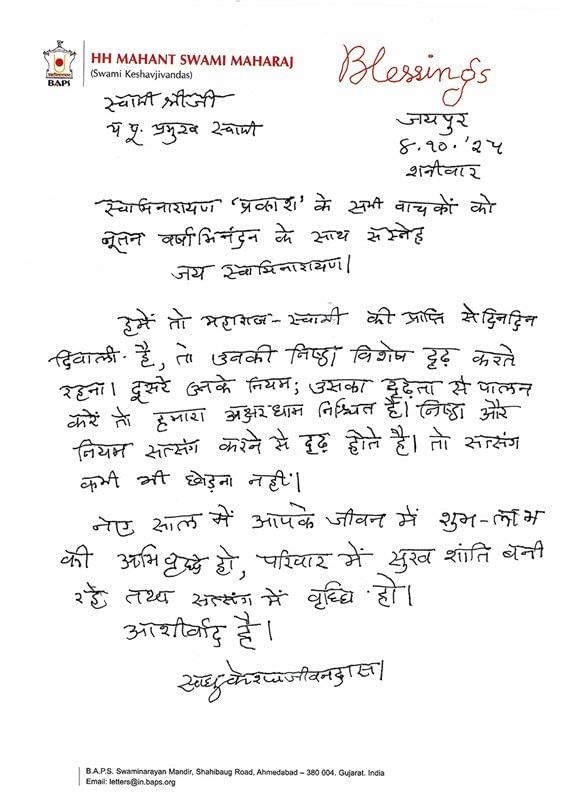 HH MAHANT SWAMI MAHARAJ
(Swami Keshavjivandas)
BAPS
Blessings
स्वामी श्रीजी
प.पू. प्रमुख स्वामी
जयपुर
४.१०.'२५
शनीवार
स्वामिनारायण 'प्रकाश' के सभी वाचकों को
नूतन वर्षाभिनंदन के साथ सस्नेह
जय स्वामिनारायण।
हमें तो महाराज-स्वामी की प्राप्ति से दिनदिन
दिवाली है, तो उनकी निष्ठा विशेष दृढ़ करते
रहना। दूसरे उनके नियम; उसका दृढ़ता से पालन
करें तो हमारा अक्षरधाम निश्चित है। निष्ठा और
नियम सत्संग करने से दृढ़ होते है। तो सत्संग
कभी भी छोड़ना नहीं।
नए साल में आपके जीवन में शुभ-लाभ
की अभिवृद्धि हो, परिवार में सुख शांति बनी
रहे तथा सत्संग में वृध्धि हो।
आशीर्वाद है।
साधु केशवजीवनदास।
B.A.P.S. Swaminarayan Mandir, Shahibaug Road, Ahmedabad – 380 004. Gujarat. India
Email: letters@in.baps.org